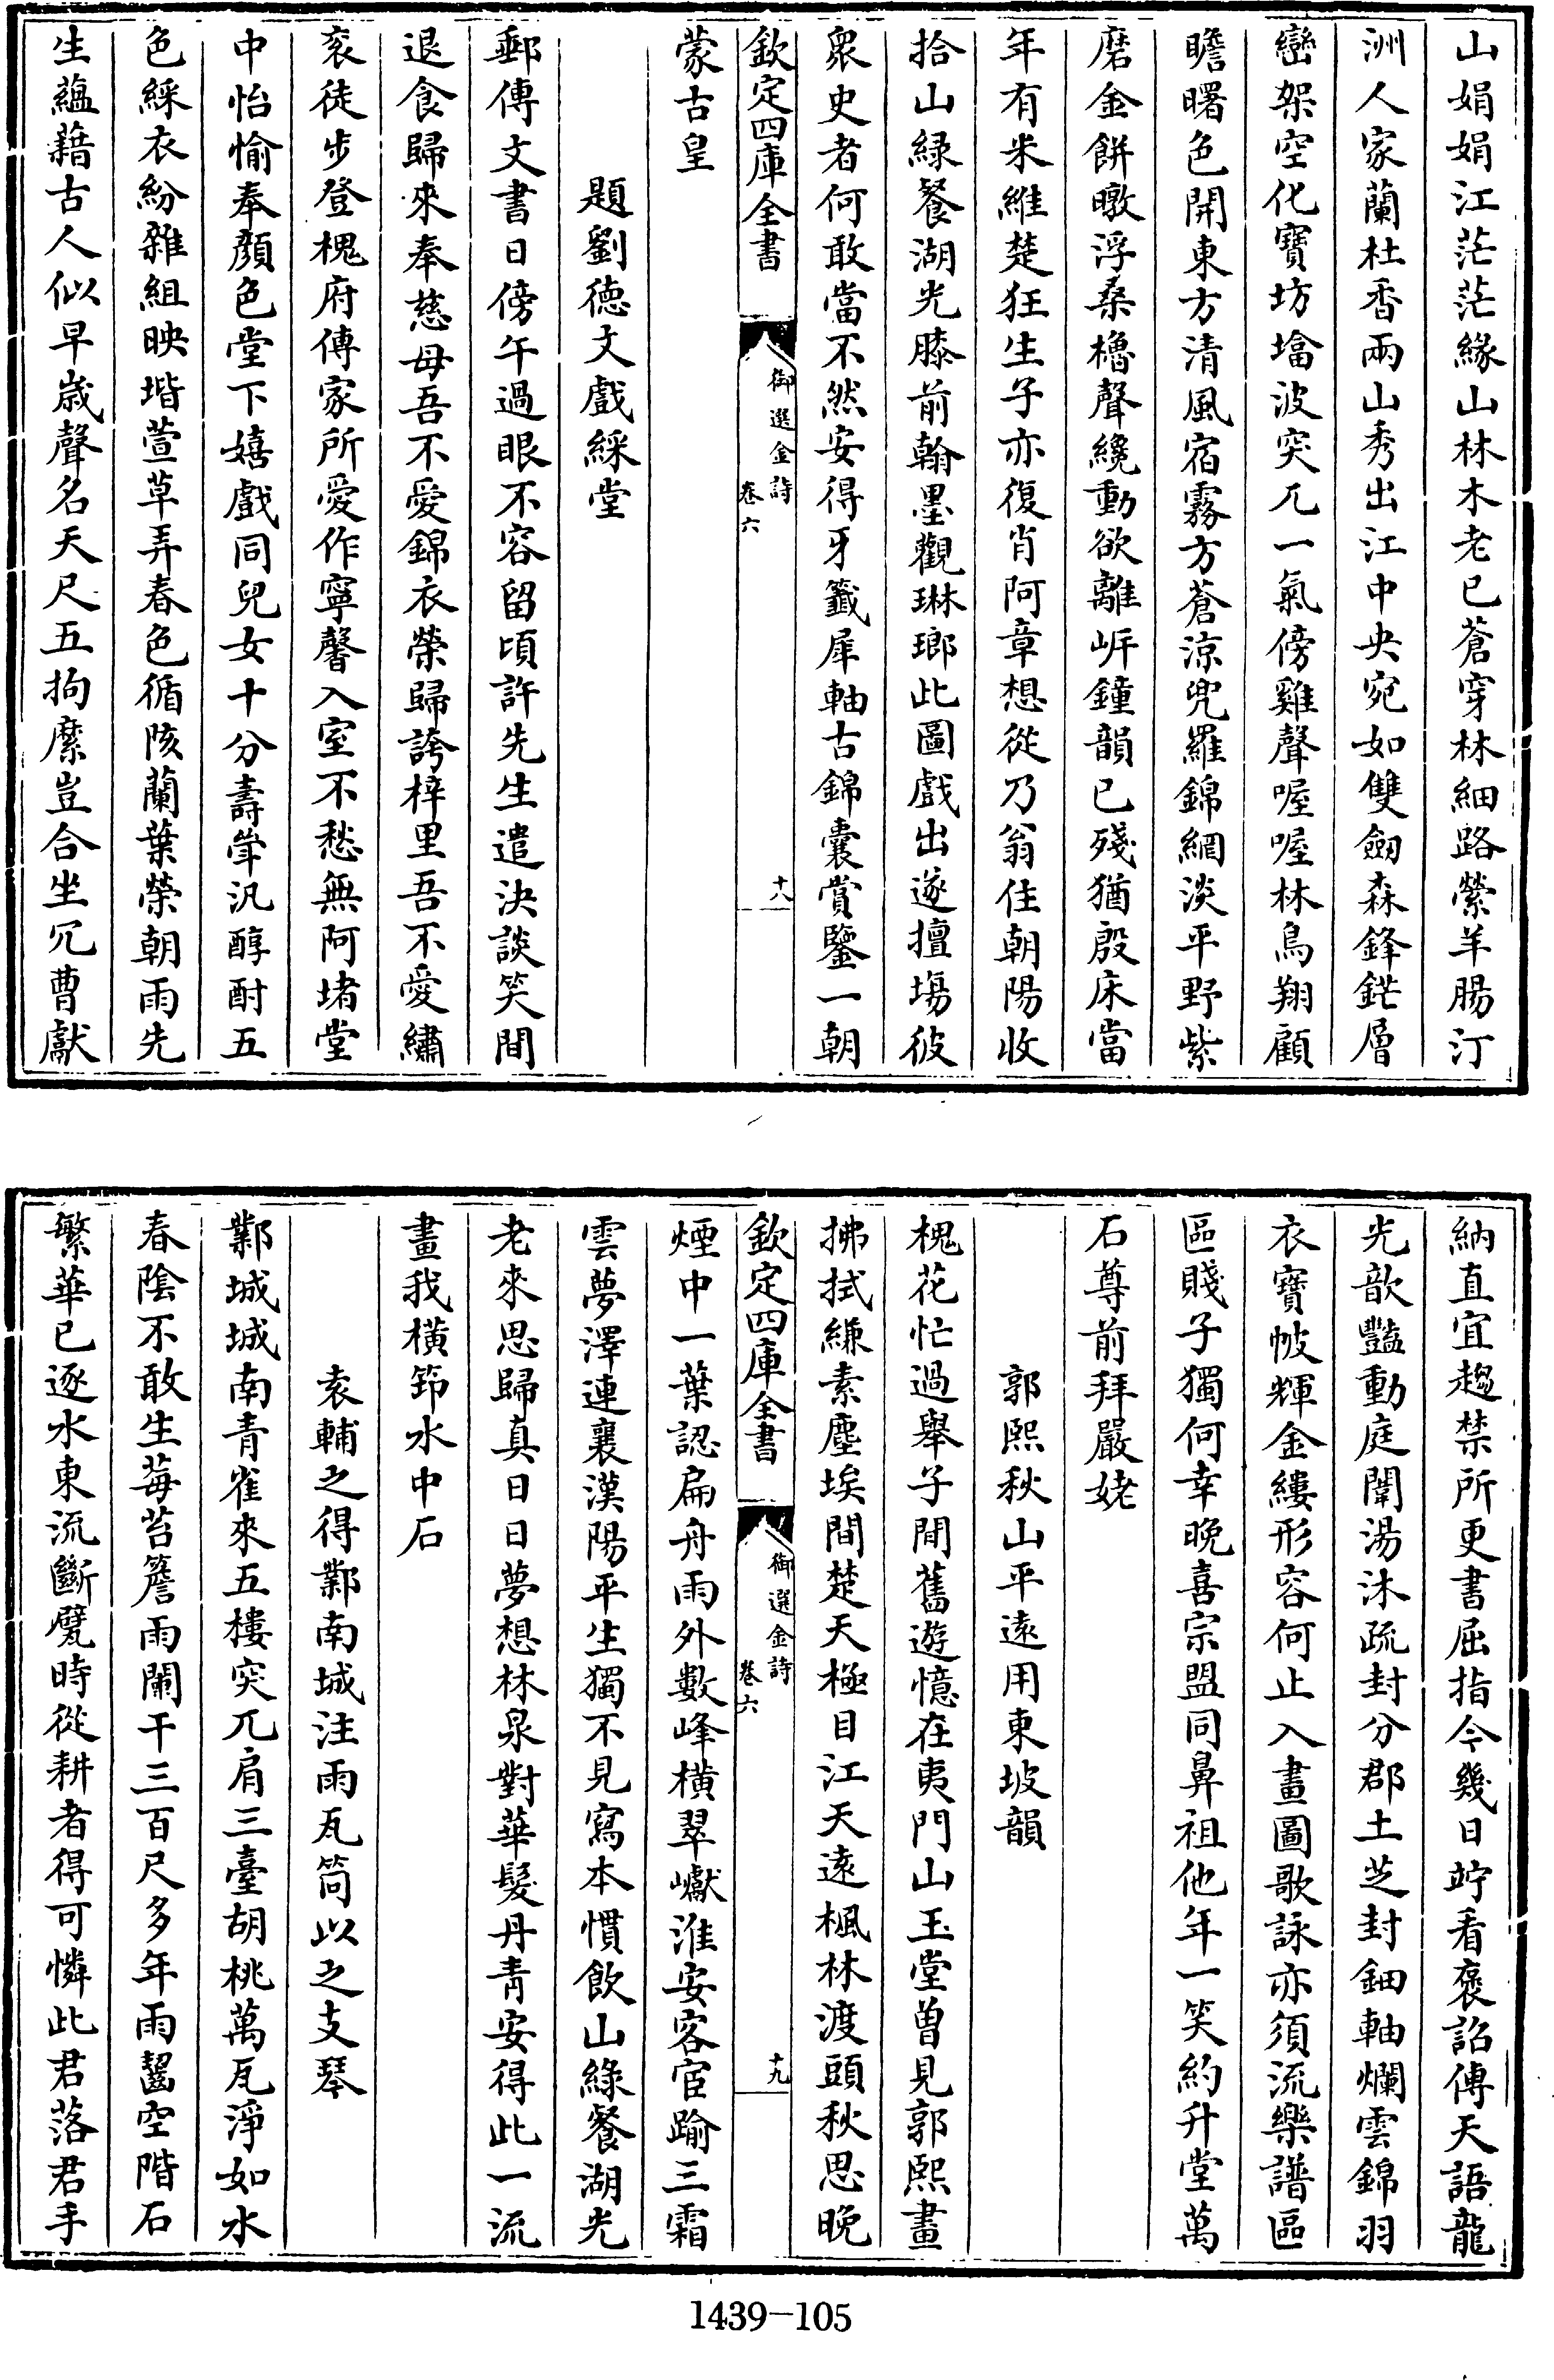 山娟娟江茫茫緣山林木老已蒼穿林細路縈羊腸汀
洲人家蘭杜香兩山秀出江中央宛如雙劒森鋒鋩層
巒架空化寶坊墖波突兀一氣傍雞聲喔喔林鳥翔顧
瞻曙色開東方清風宿霧方蒼涼兜羅錦網淡平野紫
磨金餅暾浮桑櫓聲纔動欲離岍鐘韻已殘猶殷床當
年有米維楚狂生子亦復肖阿章想從乃翁住朝陽收
拾山緑餐湖光膝前翰墨觀琳瑯此圖戲出遂擅塲彼
衆史者何敢當不然安得牙籤犀軸古錦囊賞鑒一朝
欽定四庫全書
御選金詩
卷六
十八
蒙古皇
題劉德文戲綵堂
郵傳文書日傍午過眼不容留頃許先生遣決談笑間
退食歸來奉慈母吾不愛錦衣榮歸誇梓里吾不愛繡
衮徒步登槐府傳家所愛作寧馨入室不愁無阿堵堂
中怡愉奉顔色堂下嬉戲同兒女十分壽斝汎醇酎五
色綵衣紛雜組映堦萱草弄春色循陔蘭葉榮朝雨先
生蘊藉古人似早歳聲名天尺五拘縻豈合坐冗曹獻
納直宜趨禁所更書屈指今幾日竚看褒詔傳天語龍
光歆豔動庭闈湯沐疏封分郡土芝封鈿軸爛雲錦羽
衣寶帔輝金縷形容何止入畫圖歌詠亦須流樂譜區
區賤子獨何幸晚喜宗盟同鼻祖他年一笑約升堂萬
石尊前拜嚴姥
郭熙秋山平逺用東坡韻
槐花忙過舉子間舊遊憶在夷門山玉堂曽見郭熙畫
拂拭縑素塵埃間楚天極目江天逺楓林渡頭秋思晚
欽定四庫全書
御選金詩
卷六
十九
煙中一葉認扁舟雨外數峰横翠巘淮安客宦踰三霜
雲夢澤連襄漢陽平生獨不見寫本慣飲山綠餐湖光
老來思歸真日日夢想林泉對華髮丹青安得此一流
畫我横笻水中石
袁輔之得鄴南城注雨瓦筒以之支琴
鄴城城南青雀來五樓突兀肩三臺胡桃萬瓦淨如水
春陰不敢生莓苔簷雨闌干三百尺多年雨齧空階石
繁華已逐水東流斷甓時從耕者得可憐此君落君手
1439-105